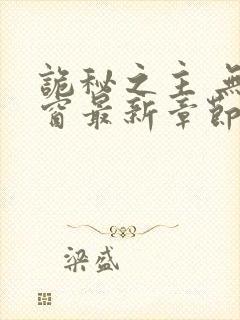 詭秘之主 無
窗最新章節
梁盛